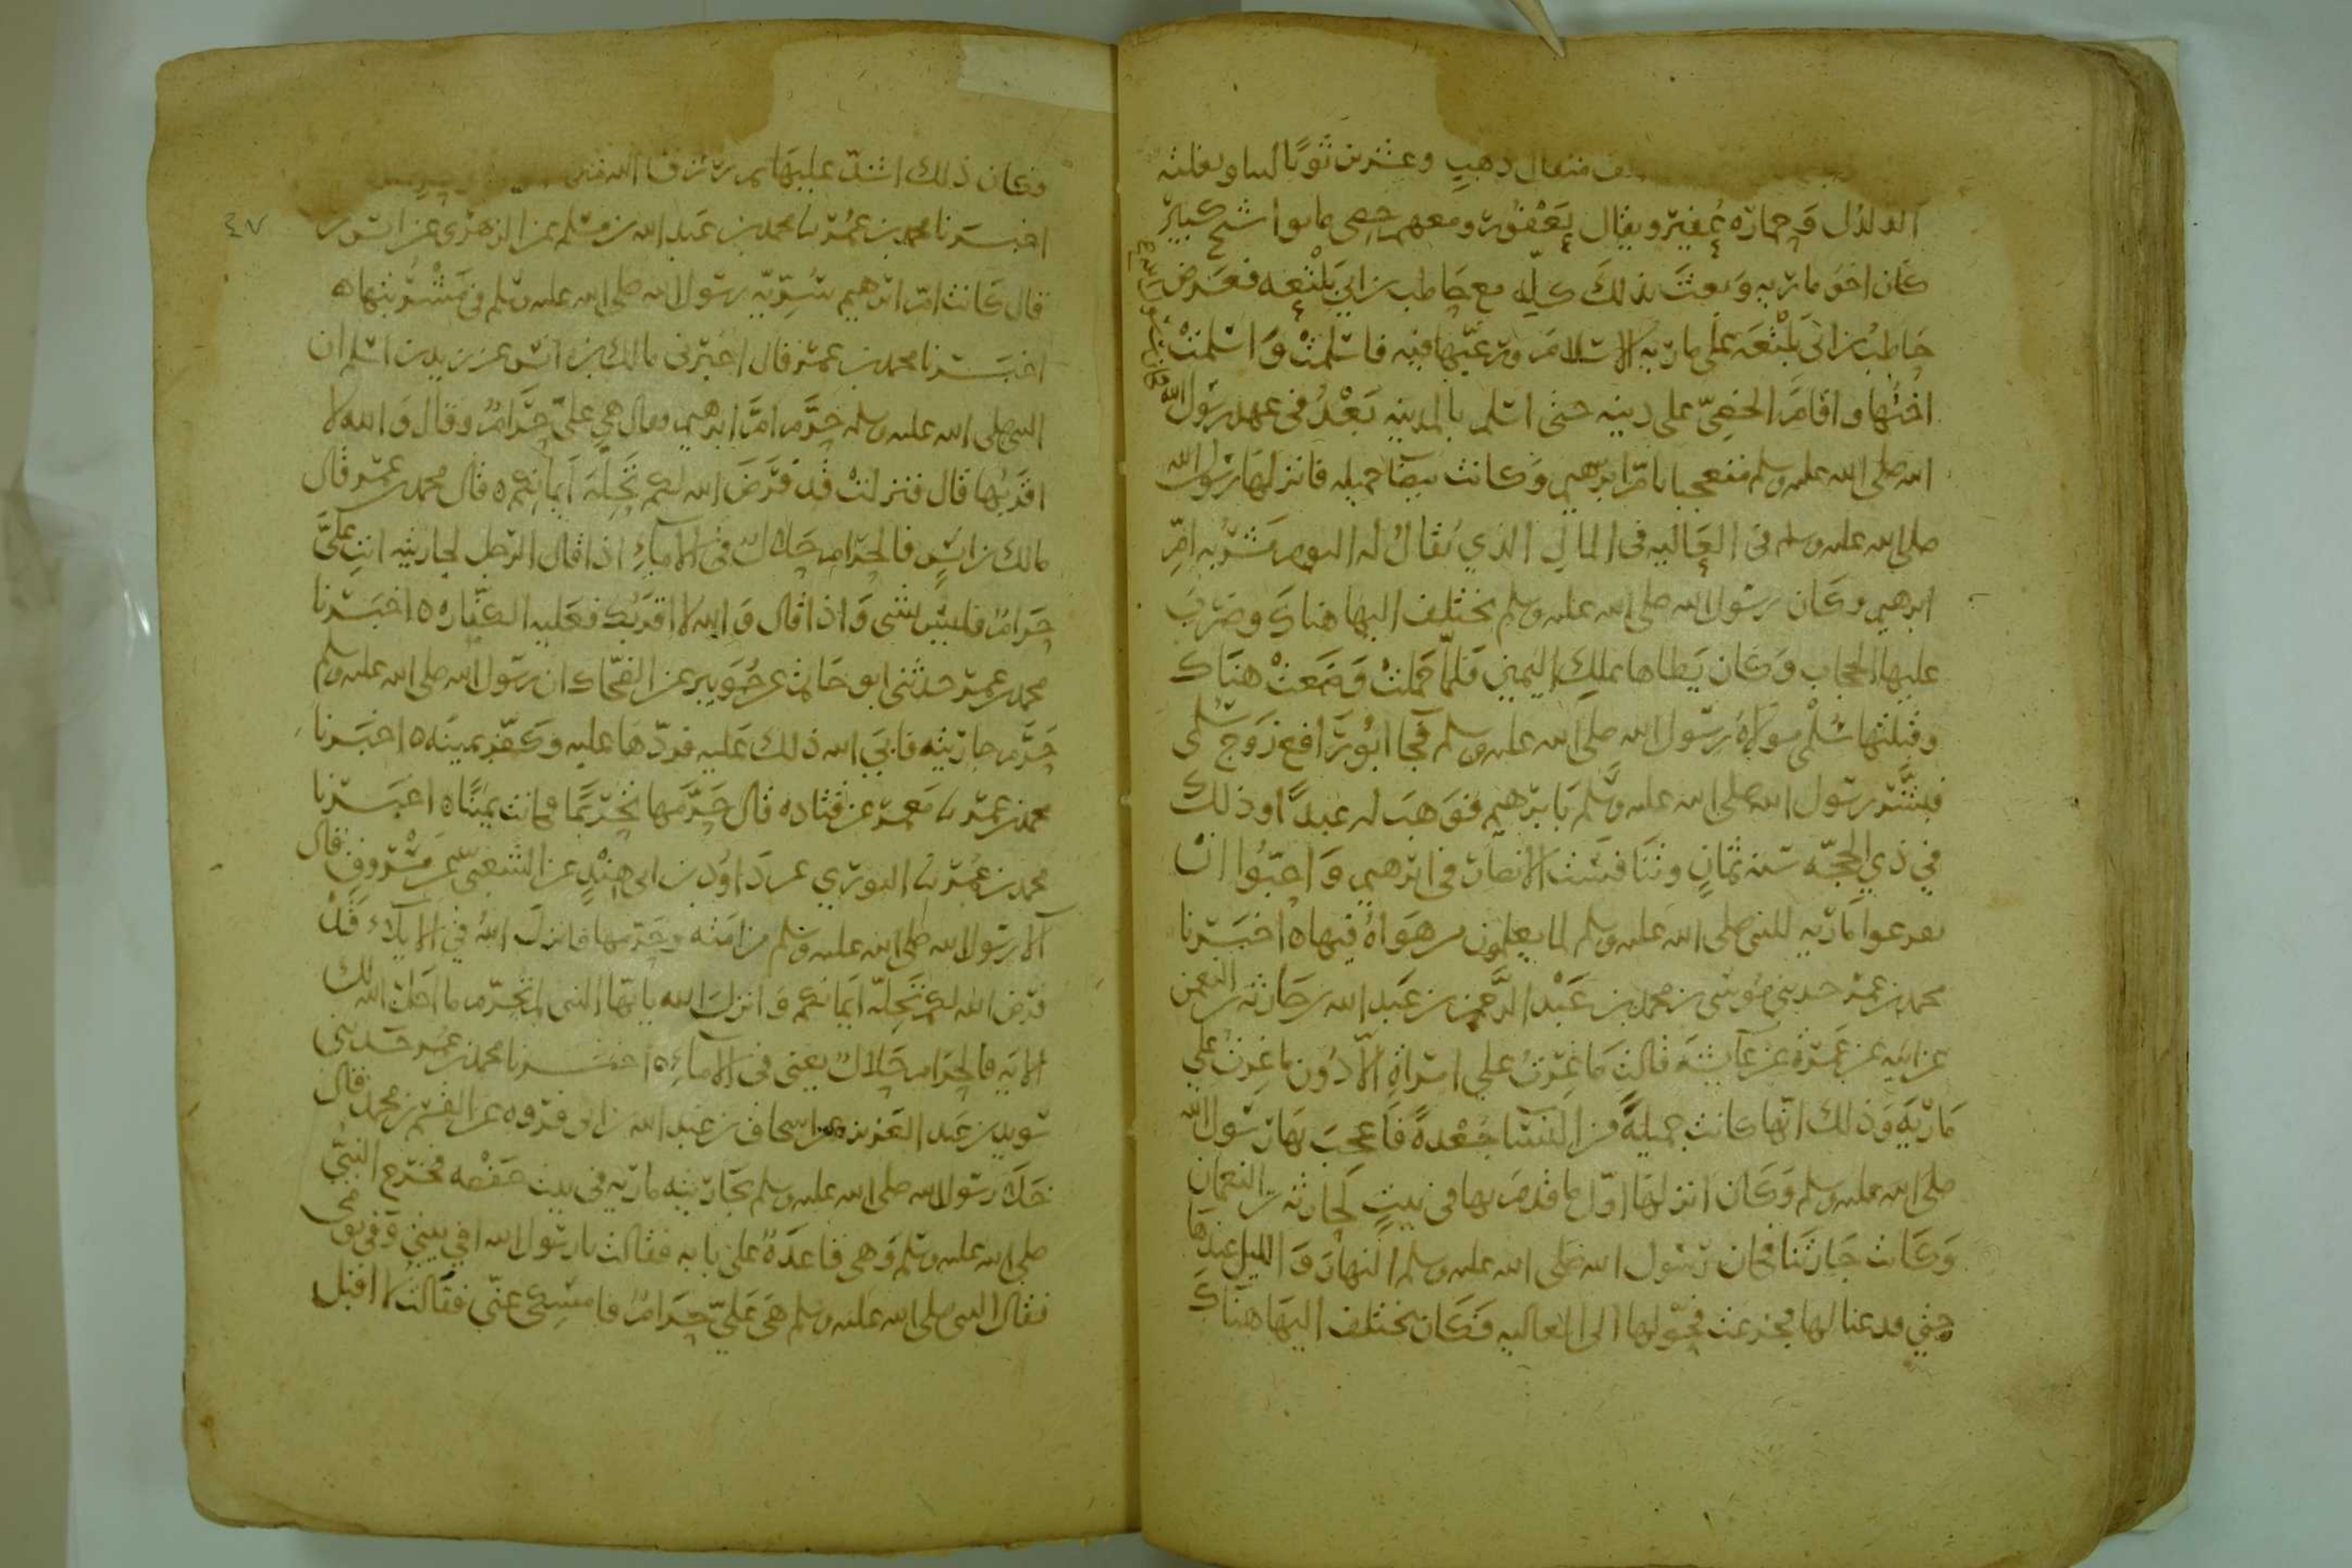 مثقال ذهب وعشرين ثوبا لينا وبغلته
الدلدل وحماره عفير ويقال يعفور ومعهم خصي مابوا شيخ كبير
كان اخو ماريه وبعث بذلك كله مع حاطب بن ابي بلتعه فعرض
حاطب بن ابي بلتعه على ماريه الاسلام ورغبها فيه فاسلمت واسلمت
اختها واقام الخصي على دينه حتى اسلم بالمدينه بعد في عهد رسول الله
الله صلى الله عليه وسلم معجبا بام ابرهيم وكانت بيضا جميله فانزلها رسول الله
صلى الله عليه وسلم في العاليه في المال الذي يقال له اليوم مشربه ام
ابرهيم وكان رسول الله صلى الله عليه وسلم يختلف اليها هناك وضرب
عليها الحجاب وكان يطاها بملك اليمين فلما حملت وضعت هناك
وقبلتها سلمى مولاة رسول الله صلى الله عليه وسلم فجا ابو رافع زوج سلمى
فبشر رسول الله صلى الله عليه وسلم بابرهيم فوهب له عبدا وذلك
في ذي الحجه سنه ثمان وتنافست الانصار في ابرهيم واحبوا ان
يفرغوا ماريه للنبي صلى الله عليه وسلم لما يعلمون من هواه فيها ه اخبرنا
محمد بن عمر حدثني موسى بن محمد بن عبد الرحمن بن عبد الله بن حارثه بن النعمن
عن ابيه عن عمرة عن عايشه قالت ما غرت على امراة الا دون ما غرت على
ماريه وذلك انها كانت جميلة من النسا جعدة فاعجب بها رسول الله
صلى الله عليه وسلم وكان انزلها اول ما قدم بها في بيت لحارثه بن النعمان
وكانت جارتنا فكان رسول الله صلى الله عليه وسلم النهار والليل عندها
حتى فرغنا لها فجزعت فحولها الى العاليه فكان يختلف اليها هناك
فكان ذلك اشد علينا ثم رزق الله منها
٤٧
اخبرنا محمد بن عمر نا محمد بن عبد الله بن مسلم عن الزهري عن انس بن
قال كانت ام ابرهيم سريه رسول الله صلى الله عليه وسلم في مشربتها ه
اخبرنا محمد بن عمر قال اخبرني مالك بن انس عن زيد بن اسلم ان
النبي صلى الله عليه وسلم حرم ام ابرهيم وقال هي علي حرام وقال والله لا
اقربها قال فنزلت قد فرض الله لكم تحله ايمانكم ه قال محمد بن عمر قال
مالك بن انس فالحرام حلال في الاماء اذا قال الرجل لجاريته انت علي
حرام فليس بشي واذا قال والله لا اقربك فعليه الكفاره ه اخبرنا
محمد بن عمر حدثني ابو حاتم عن جويبر عن الضحاك ان رسول الله صلى الله عليه وسلم
حرم جاريته فابى الله ذلك عليه فردها عليه وكفر يمينه ه اخبرنا
محمد بن عمر نا معمر عن قتاده قال حرمها تحريما فكانت يمينا ه اخبرنا
محمد بن عمر نا الثوري عن داود بن ابي هند عن الشعبي عن مسروق قال
آلا رسول الله صلى الله عليه وسلم من امته وحرمها فانزل الله في الايلاء قد
فرض الله لكم تحله ايمانكم وانزل الله يا ايها النبي لم تحرم ما احل الله لك
الايه فالحرام حلال يعني في الاماء ه اخبرنا محمد بن عمر حدثني
سويد بن عبد العزيز عن اسحاق بن عبد الله بن ابي فروه عن القسم بن محمد قال
خلا رسول الله صلى الله عليه وسلم بجاريته ماريه في بيت حفصه فخرج النبي
صلى الله عليه وسلم وهي قاعدة على بابه فقالت يا رسول الله افي بيتي وفي يومي
فقال النبي صلى الله عليه وسلم هي علي حرام فامسكي عني فقالت لا اقبل